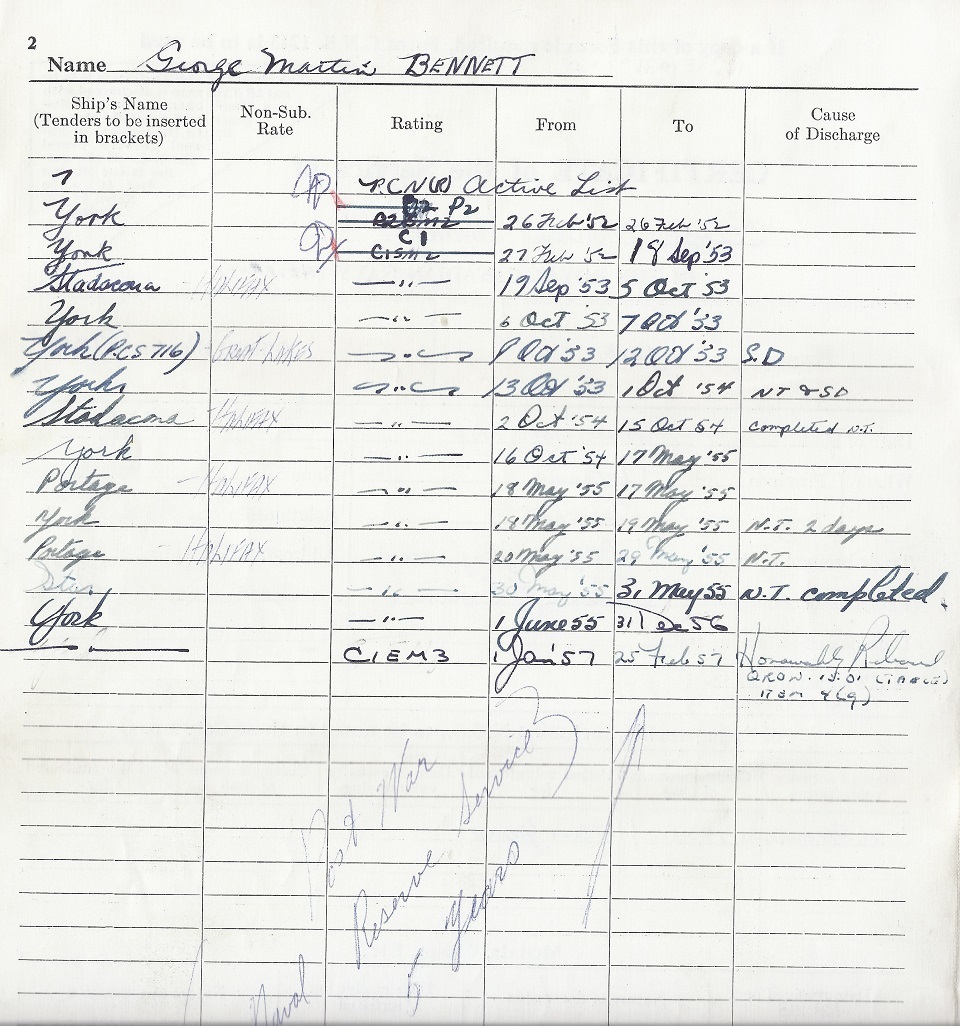 2
Name George Martin BENNETT
Ship's Name (Tenders to be inserted in brackets) Non-Sub. Rate Rating From To Cause of Discharge
R.C.N(R) Active List
P2 P2
York 26 Feb '52 26 Feb '52
C1
York C1SM2 27 Feb '52 18 Sep '53
Stadacona - HALIFAX —"— 19 Sep '53 5 Oct '53
York —"— 6 Oct 53 7 Oct '53
York (P.C.S 716) - Great-Lakes —"— Oct '53 12 Oct '53 S.D
York —"— 13 Oct '53 1 Oct '54 NT & SD
Stadacona - HALIFAX —"— 2 Oct '54 15 Oct 54 completed N.T.
York —"— 16 Oct '54 17 May '55
Portage - HALIFAX —"— 18 May '55 17 May '55
York —"— 18 May '55 19 May '55 N.T. 2 days
Portage - HALIFAX —"— 20 May '55 29 May '55 N.T.
Star —"— 30 May '55 31 May 55 N.T. completed.
York —"— 1 June 55 31 Dec 56
—"— C1EM3 1 Jan '57 25 Feb 57 Honourably Released
QRCN. 15.01 (TABLE)
ITEM 4(g)
Post War
Naval Reserve Service
5 years